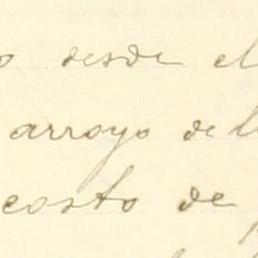 o desde el
arroyo del
costo de